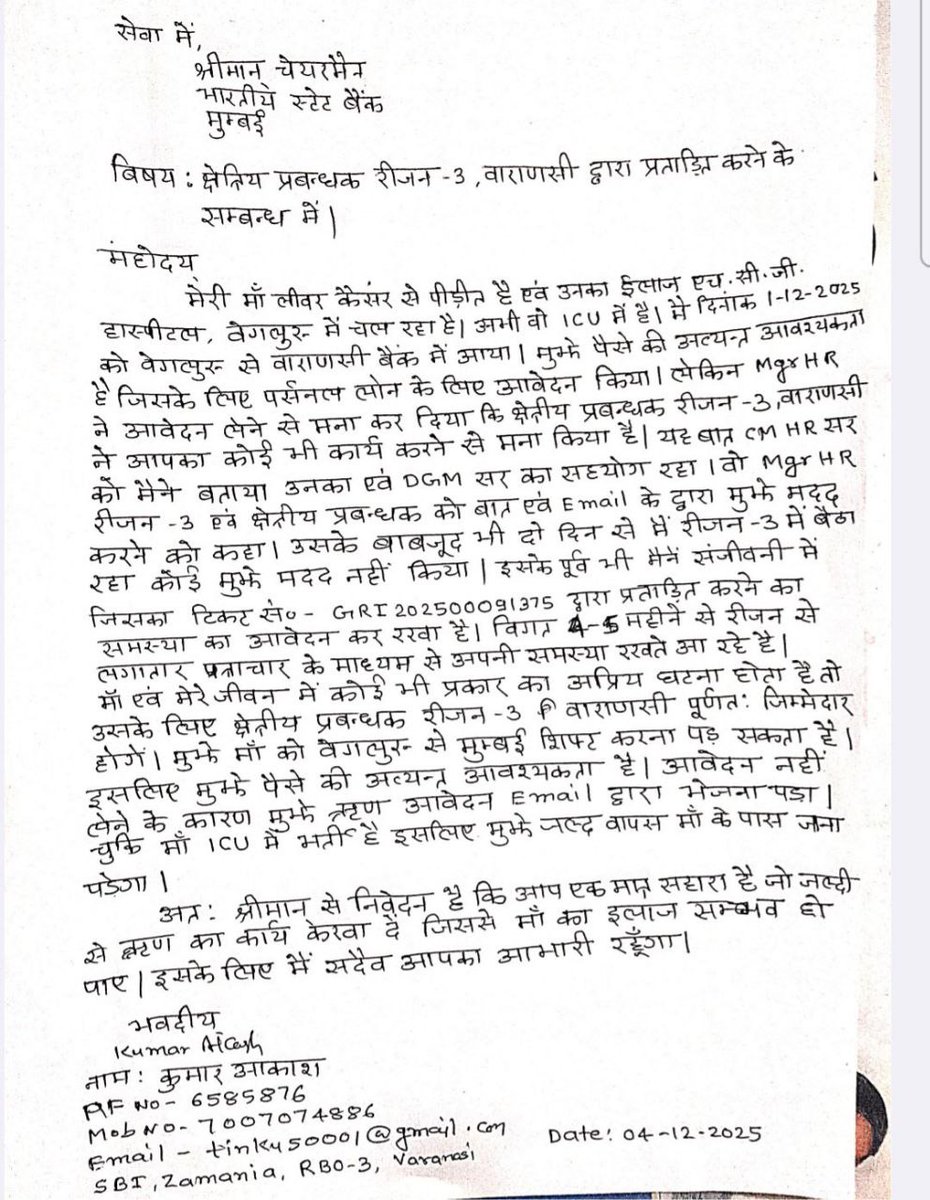 सेवा में,
श्रीमान चेयरमैन
भारतीये स्टेट बैंक
मुम्बई
विषय : क्षेत्रिय प्रबन्धक रीजन -3 , वाराणसी द्वारा प्रताड़ित करने के
सम्बन्ध में |
महोदय
मेरी माँ लीवर कैसर से पीड़ीत है एवं उनका ईलाज एच. सी. जी.
हास्पीटल, वेगलुरु में चल रहा है। अभी वो ICU में है। मै दिनांक 1-12-2025
को वेगलुरु से वाराणसी बैंक में आया | मुझे पैसे की अत्यन्त आवश्यकता
है जिसके लिए पर्सनल लोन के लिए आवेदन किया। लेकिन Mgr HR
ने आवेदन लेने से मना कर दिया कि क्षेतीय प्रबन्धक रीजन -3, वाराणसी
ने आपका कोई भी कार्य करने से मना किया है | यह बात CM HR सर
को मैने बताया उनका एवं DGM सर का सहयोग रहा । वो Mgr HR
रीजन -3 एवं क्षेतीय प्रबन्धक को बात एवं Email के द्वारा मुझे मदद
करने को कहा। उसके बाबजूद भी दो दिन से मैं रीजन -3 में बैठा
रहा कोई मुझे मदद नहीं किया | इसके पूर्व भी मैनें संजीवनी में
जिसका टिकट सं० - GRI 202500091375 द्वारा प्रताड़ित करने का
समस्या का आवेदन कर रखा है। विगत 4-5 महीने से रीजन से
लगातार पत्राचार के माध्यम से अपनी समस्या रखते आ रहे है |
माँ एवं मेरे जीवन में कोई भी प्रकार का अप्रिय घटना होता है तो
उसके लिए क्षेत्रीय प्रबन्धक रीजन -3 वाराणसी पूर्णत: जिम्मेदार
होगें। मुझे माँ को वेगलुरु से मुम्बई शिफ्ट करना पड़ सकता है |
इसलिए मुझे पैसे की अत्यन्त आवश्यकता है | आवेदन नहीं
लेने के कारण मुझे ऋण आवेदन Email द्वारा भेजना पडा |
चुकि माँ ICU में भर्ती है इसलिए मुझे जल्द वापस माँ के पास जाना
पड़ेगा ।
अत: श्रीमान से निवेदन है कि आप एक मात्र सहारा है जो जल्दी
से ऋण का कार्य करवा दे जिससे माँ का इलाज सम्भव हो
पाए | इसके लिए मैं सदैव आपका आभारी रहूँगा।
भवदीय
Kumar Akash
नाम : कुमार आकाश
PF NO - 6585876
Mob NO - 7007074886
Email - tinku50001@gmail.com
SBI, Zamania, RBO-3, Varanasi
Date: 04-12-2025